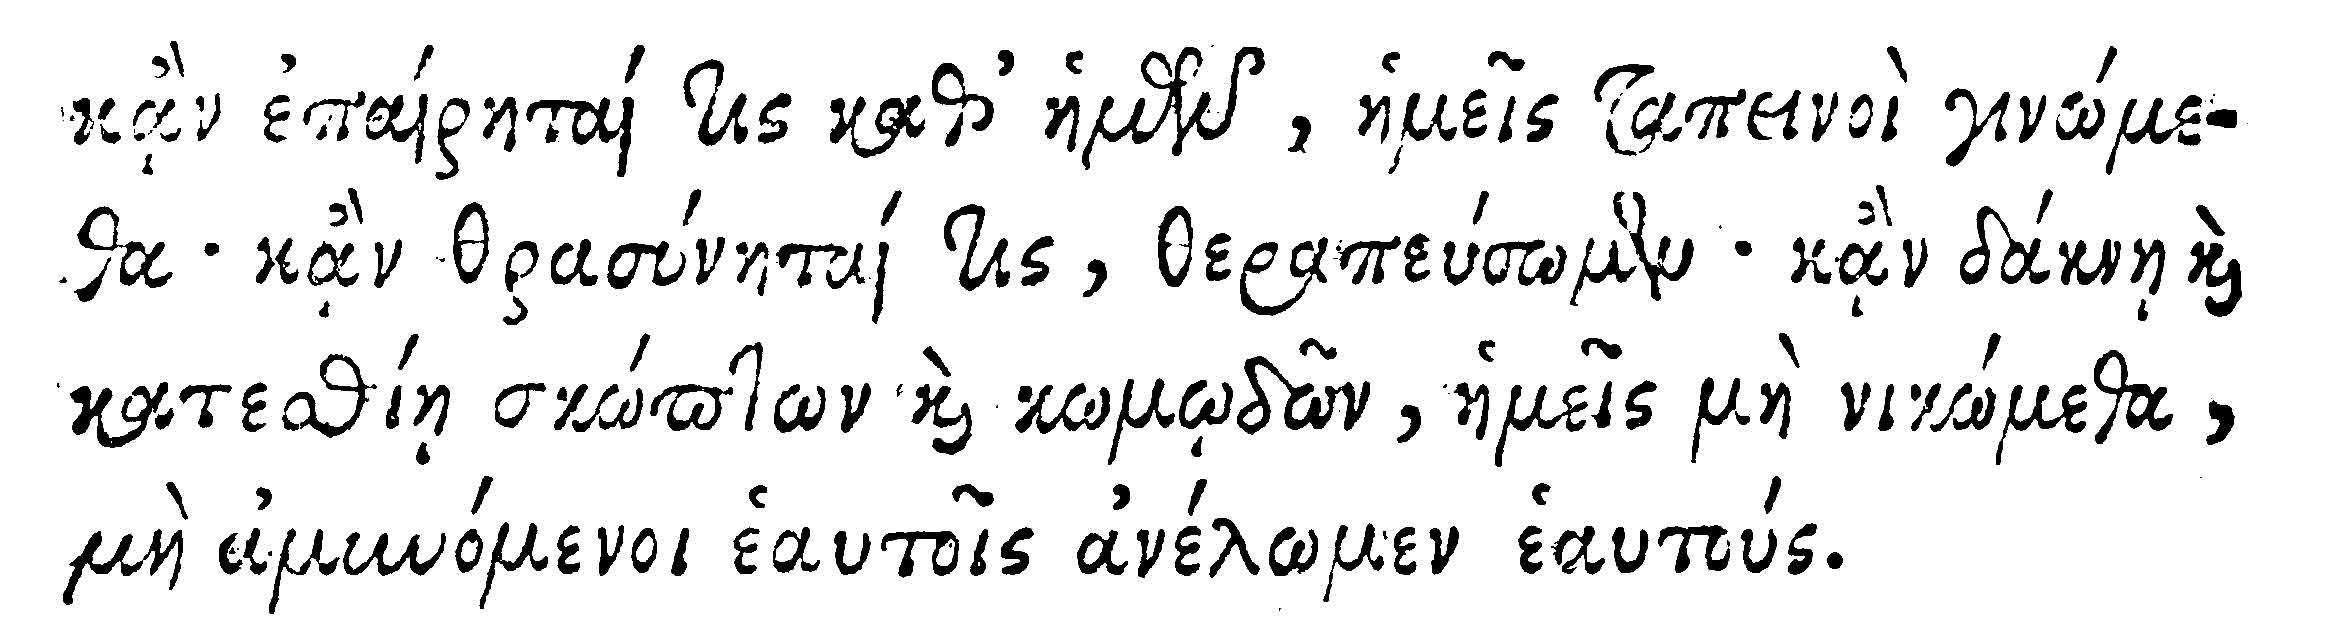 κᾂν ἐπαίρηταί τις καθ' ἡμῶν, ἡμεῖς ταπεινοὶ γινώμε-
θα· κᾂν θρασύνηταί τις, θεραπεύσωμεν· κᾂν δάκνῃ καὶ
κατεσθίῃ σκώπτων καὶ κωμῳδῶν, ἡμεῖς μὴ νικώμεθα,
μὴ ἀμυνόμενοι ἑαυτοῖς ἀνέλωμεν ἑαυτούς.